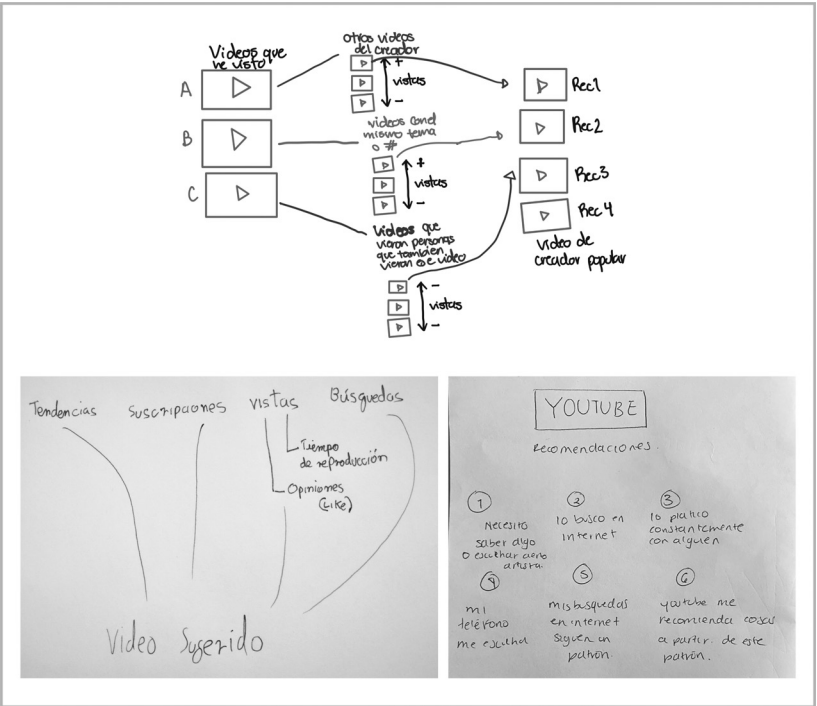 Videos que
he visto
A
B
C
otros videos
del creador
+
vistas
-
videos con el
mismo tema
o #
+
vistas
-
Videos que
vieron personas
que tambien
vieron ese video
-
vistas
-
Rec1
Rec2
Rec3
Rec4
video de
creador popular
Tendencias
Suscripciones
vistas
Búsquedas
Tiempo
de reproducción
Opiniones
(Like)
Video Sugerido
YOUTUBE
recomendaciones.
1
Necesito
saber algo
o escuchar cierto
artista.
2
lo busco en
internet
3
lo platico
constantemente
con alguien
4
mi
teléfono
me escucha
5
mis busquedas
en internet
siguen un
patrón.
6
youtube me
recomienda cosas
a partir de este
patrón.